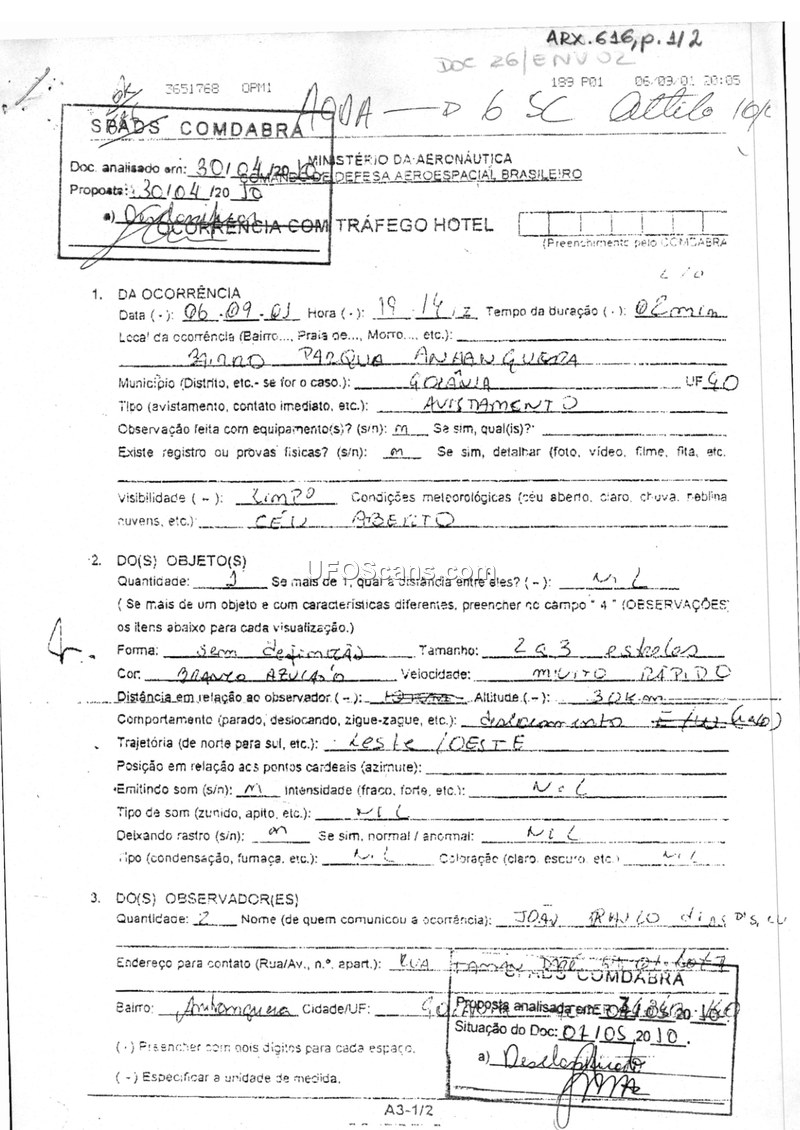 ARX.616, p. 1/2
DOC 26/ENV 02
3651768 OPM1 189 P01 06/09/01 20:05
SPADS COMDABRA
Doc. analisado em: 30/04/20
Proposta: 30/04/2010
a)
MINISTÉRIO DA AERONÁUTICA
COMANDO DE DEFESA AEROESPACIAL BRASILEIRO
OCORRÊNCIA COM TRÁFEGO HOTEL
(Preenchimento pelo COMDABRA
1. DA OCORRÊNCIA
Data (·): 06.09.01 Hora (·): 19 14 z Tempo da duração (·): 02 min
Local da ocorrência (Bairro..., Praia de..., Morro..., etc.):
BAIRRO PARQUA ANHANGUERA
Município (Distrito, etc.- se for o caso.): GOIÂNIA UF GO
Tipo (avistamento, contato imediato, etc.): AVISTAMENTO
Observação feita com equipamento(s)? (s/n): n Se sim, qual(is)?
Existe registro ou provas físicas? (s/n): n Se sim, detalhar (foto, vídeo, filme, fita, etc.
Visibilidade ( – ): LIMPO Condições meteorológicas (céu aberto, claro, chuva, neblina
nuvens, etc.): CÉU ABERTO
2. DO(S) OBJETO(S)
UFOScans.com
Quantidade: 1 Se mais de 1, qual a distância entre eles? ( – ): NIL
( Se mais de um objeto e com características diferentes, preencher no campo " 4 " (OBSERVAÇÕES)
os itens abaixo para cada visualização.)
Forma: sem definição Tamanho: 2 a 3 estrelas
Cor: BRANCO AZULADO Velocidade: MUITO RÁPIDO
Distância em relação ao observador ( – ): Altitude ( – ): 30 km
Comportamento (parado, deslocando, zigue-zague, etc.): deslocamento
Trajetória (de norte para sul, etc.): Leste / OESTE
Posição em relação aos pontos cardeais (azimute):
Emitindo som (s/n): n Intensidade (fraco, forte, etc.): NIL
Tipo de som (zunido, apito, etc.): NIL
Deixando rastro (s/n): n Se sim, normal / anormal: NIL
Tipo (condensação, fumaça, etc.): NIL Coloração (claro, escuro, etc.) NIL
3. DO(S) OBSERVADOR(ES)
Quantidade: 2 Nome (de quem comunicou a ocorrência): JOÃO dias
Endereço para contato (Rua/Av., n.º, apart.): RUA
COMDABRA
Bairro: Anhanguera Cidade/UF:
Proposta analisada em:
Situação do Doc: 07/05 2010.
a) Desclassificado
(·) Preencher com dois dígitos para cada espaço.
( – ) Especificar a unidade de medida.
A3-1/2